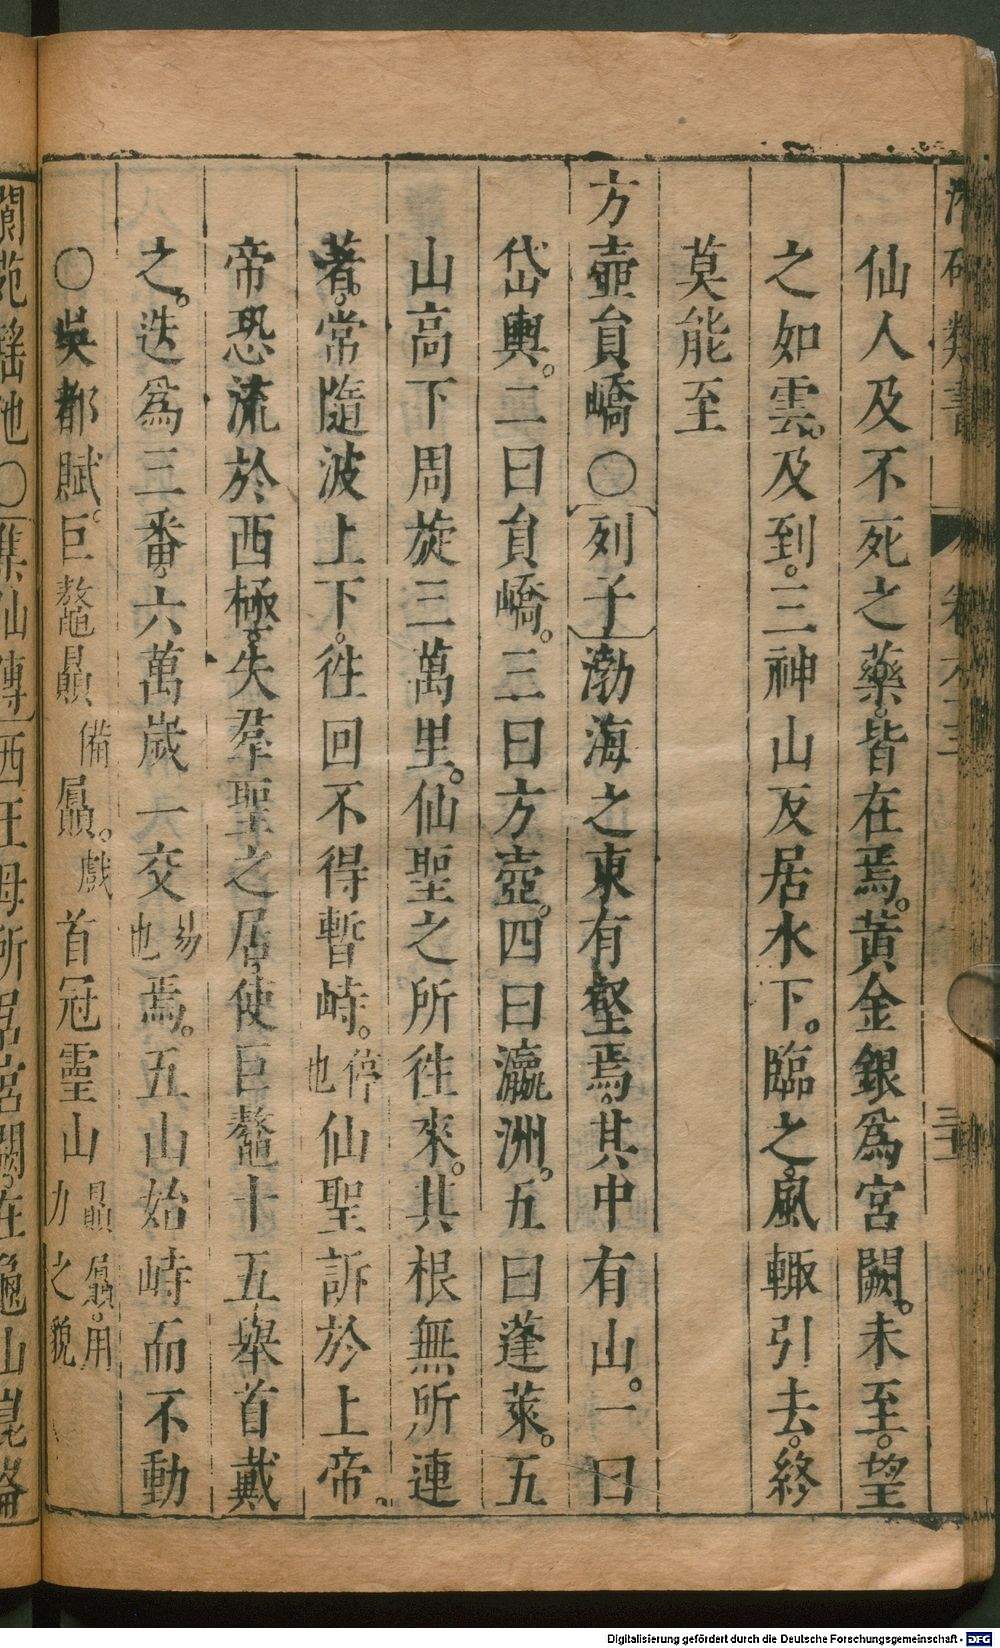 類書
卷六
仙人及不死之藥皆在焉。黃金銀爲宮闕。未至。望
之如雲。及到。三神山反居水下。臨之。風輙引去。終
莫能至
方壺負嶠〇列子渤海之東有壑焉。其中有山。一曰
岱輿。二曰負嶠。三曰方壺。四曰瀛洲。五曰蓬萊。五
山高下周旋三萬里。仙聖之所徃來。其根無所連
著。常隨波上下。徃回不得暫峙。停也仙聖訴於上帝。
帝恐流於西極。失羣聖之居。使巨鼇十五舉首戴
之。迭爲三番。六萬歲一交易也焉。五山始峙而不動
〇吳都賦。巨鼇贔備屭。戲首冠靈山贔屭。用力之貌
閬苑瑤池〇集仙傳西王母所居宮闕。在龜山崑崙
Digitalisierung gefördert durch die Deutsche Forschungsgemeinschaft - DFG